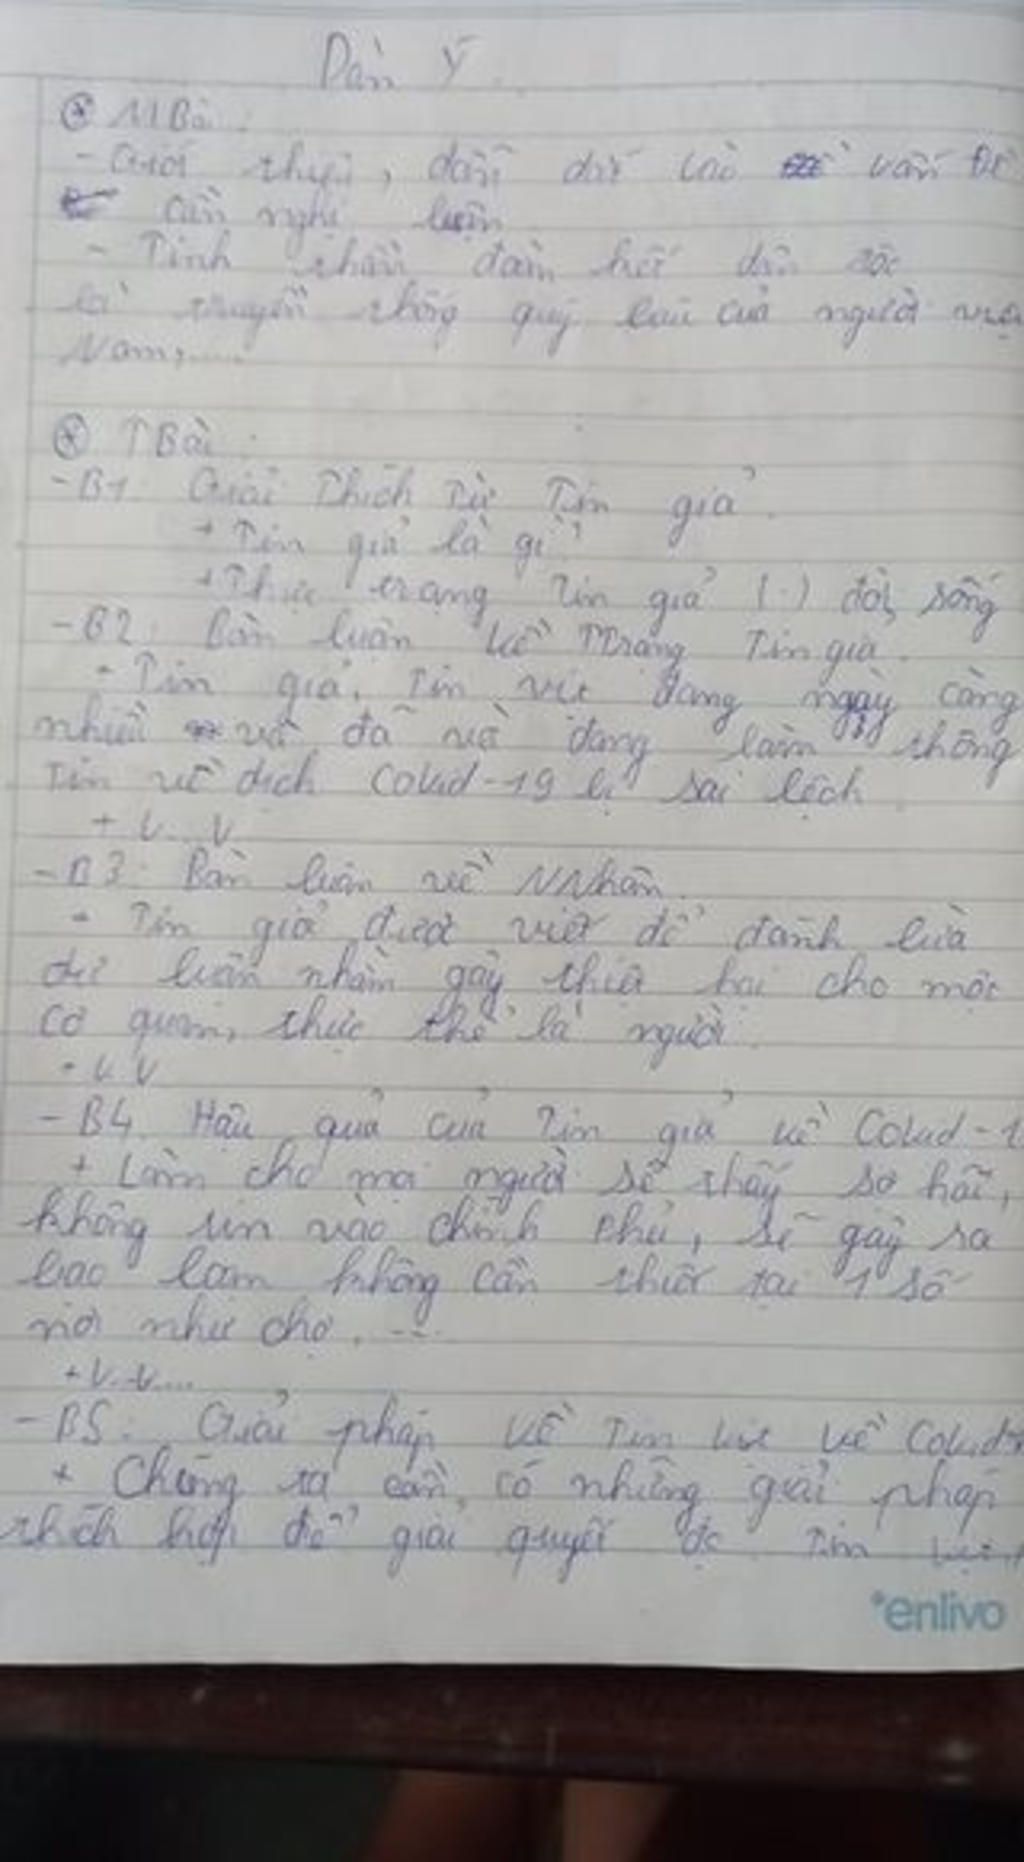 Dàn ý
* MBài:
- Giới thiệu, dẫn dắt vào vấn đề
cần nghị luận
- Tinh thần đoàn kết dân tộc
là truyền thống quý báu của người việ
Nam,....
* TBài:
- B1: Giải Thích Từ Tin giả.
+ Tin giả là gì?
+ Thực trạng Tin giả (.) đời sống
- B2: Bàn luận về TTrạng Tin giả.
- Tin giả, Tin vịt đang ngày càng
nhiều và đã và đang làm thông
Tin về dịch Covid-19 bị sai lệch
+ V...V
- B3: Bàn luận về NNhân.
- Tin giả được viết để đánh lừa
dư luận nhằm gây thiệt hại cho một
cơ quan, thực thể là người.
- V V
- B4. Hậu quả của Tin giả về Covid-1
+ Làm cho mọi người sẽ thấy sợ hãi,
không tin vào chính phủ, sẽ gây ra
bạo loạn không cần thiết tại 1 số
nơi như chợ. ....
+ V.V....
- B5: Giải pháp về Tin vịt về Covid-
+ Chúng ta cần có những giải pháp
thích hợp để giải quyết đc Tin
enlivo